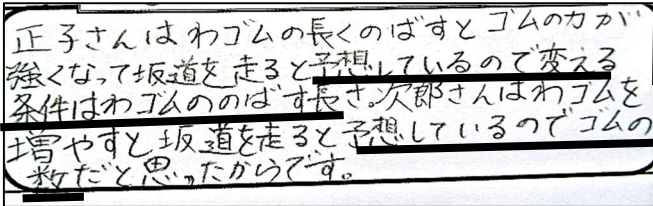 正子さんはわゴムの長くのばすとゴムの力が
強くなって坂道を走ると予想しているので変える
条件はわゴムののばす長さ。次郎さんはわゴムを
増やすと坂道を走ると予想しているのでゴムの
数だと思ったからです。